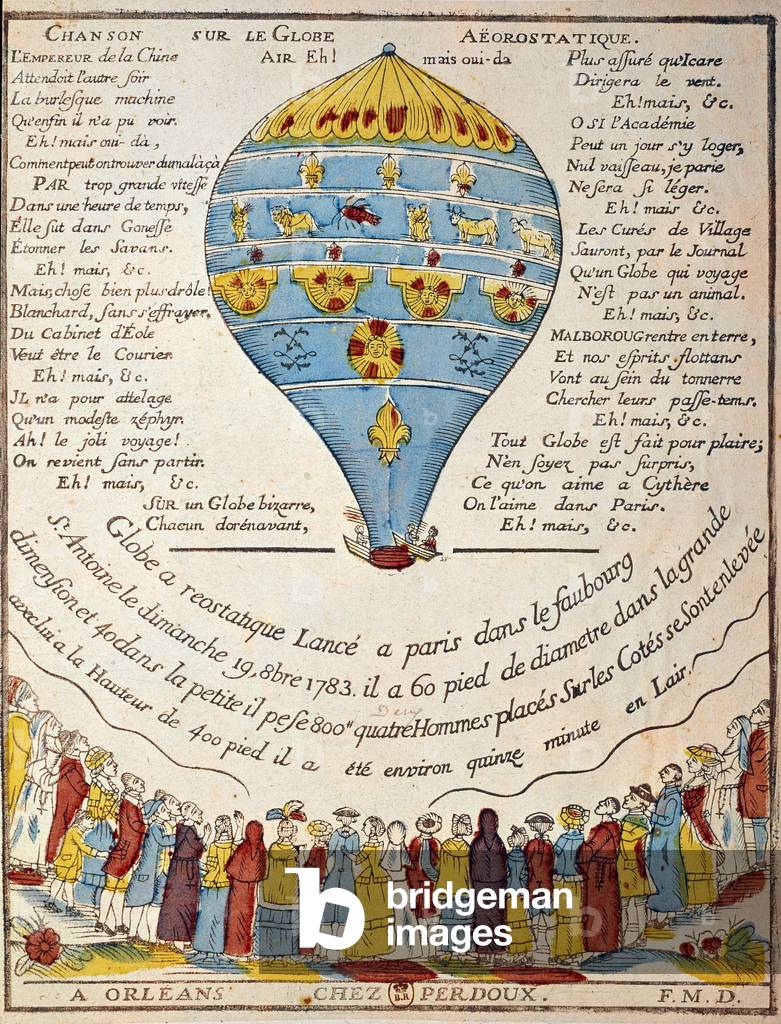 CHANSON SUR LE GLOBE AËOROSTATIQUE.
AIR Eh! mais oui-da
L'EMPEREUR de la Chine
Attendoit l'autre ſoir
La burleſque machine
Qu'enfin il n'a pu voir.
Eh! mais oui-dà,
Comment peut on trouver du mal à çà
PAR trop grande viteſſe
Dans une heure de temps,
Elle fût dans Goneſſe
Étonner les Savans.
Eh! mais, &c.
Mais, choſe bien plus drôle!
Blanchard, ſans s'effrayer,
Du Cabinet d'Éole
Veut être le Courier.
Eh! mais, &c.
JL n'a pour attelage
Qu'un modeſte zéphyr.
Ah! le joli voyage!
On revient ſans partir.
Eh! mais, &c.
SUR un Globe bizarre,
Chacun dorénavant,
Plus aſſuré qu'Icare
Dirigera le vent.
Eh! mais, &c.
O SI l'Académie
Peut un jour s'y loger,
Nul vaiſſeau, je parie
Ne ſera ſi léger.
Eh! mais &c.
Les Curés de Village
Sauront, par le Journal
Qu'un Globe qui voyage
N'eſt pas un animal.
Eh! mais, &c.
MALBOROUG rentre en terre,
Et nos eſprits flottans
Vont au ſein du tonnerre
Chercher leurs paſſe-tems.
Eh! mais, &c.
Tout Globe eſt fait pour plaire;
N'en ſoyez pas ſurpris,
Ce qu'on aime a Cythère
On l'aime dans Paris.
Eh! mais, &c.
Globe a reostatique Lancé a paris dans le faubourg
St. Antoine le dimanche 19, 8bre 1783. il a 60 pied de diametre dans la grande
dimenſion et 40 dans la petite il peſe 800" quatre Hommes placés Sur les Cotés se Sont enlevée
avec lui a la Hauteur de 400 pied il a été environ quinze minute en Lair.
bridgeman
images
A ORLÉANS CHEZ B.R PERDOUX. F. M. D.